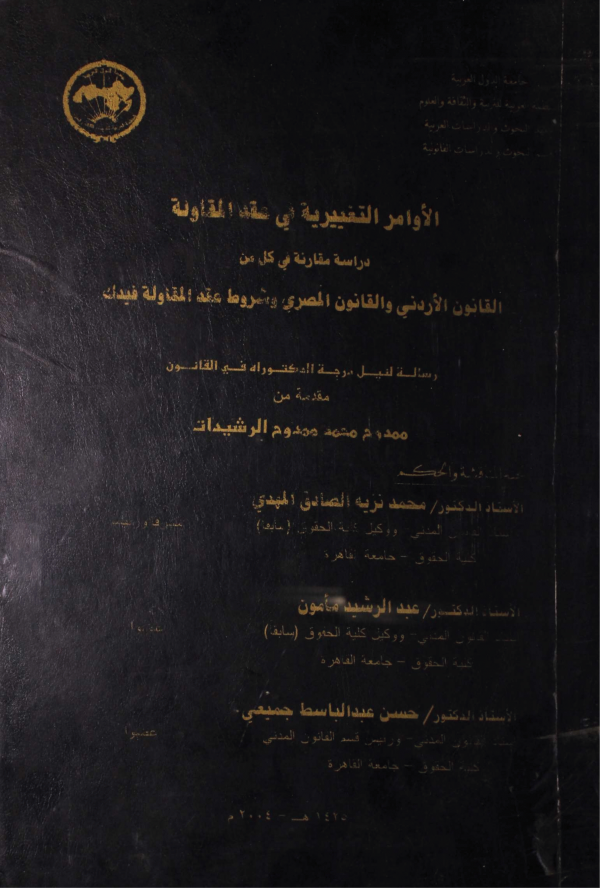 جامعة الدول العربية
العربية للتربية والثقافة والعلوم
البحوث والدراسات العربية
البحوث والدراسات القانونية
الأوامر التغييرية في عقد المقاولة
دراسة مقارنة في كل من
القانون الأردني والقانون المصري وشروط عقد المقاولة فيدك
رسالة لنيل درجة الدكتوراه في القانون
مقدمة من
ممدوح محمد ممدوح الرشيدات
المناقشة والحكم
الأستاذ الدكتور/ محمد نزيه الصادق المهدي
القانون المدني ووكيل كلية الحقوق (سابقا)
كلية الحقوق - جامعة القاهرة
الأستاذ الدكتور/ عبد الرشيد مأمون
القانون المدني - ووكيل كلية الحقوق (سابقا) عضوا
كلية الحقوق - جامعة القاهرة
الأستاذ الدكتور/ حسن عبدالباسط جميعي
القانون المدني - ورئيس قسم القانون المدني عضوا
كلية الحقوق - جامعة القاهرة
١٤٢٥ هـ - ٢٠٠٤ م